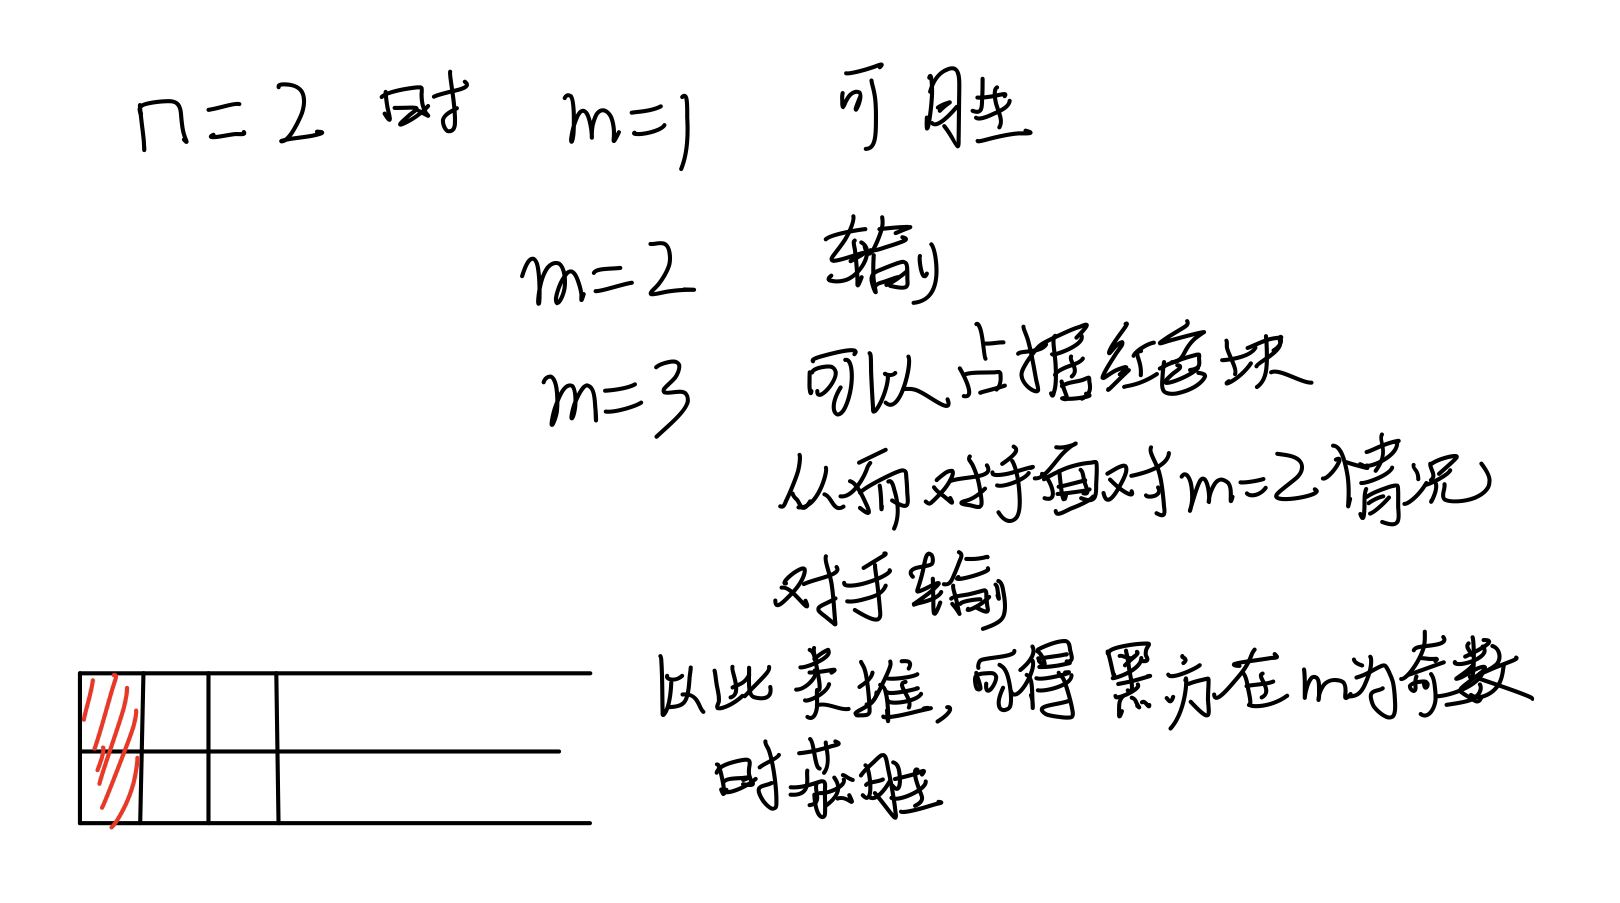 n=2 时 m=1 可胜
m=2 输
m=3 可以占据红色块
从而对手面对m=2情况
对手输
以此类推,可得黑方在m为奇数
时获胜